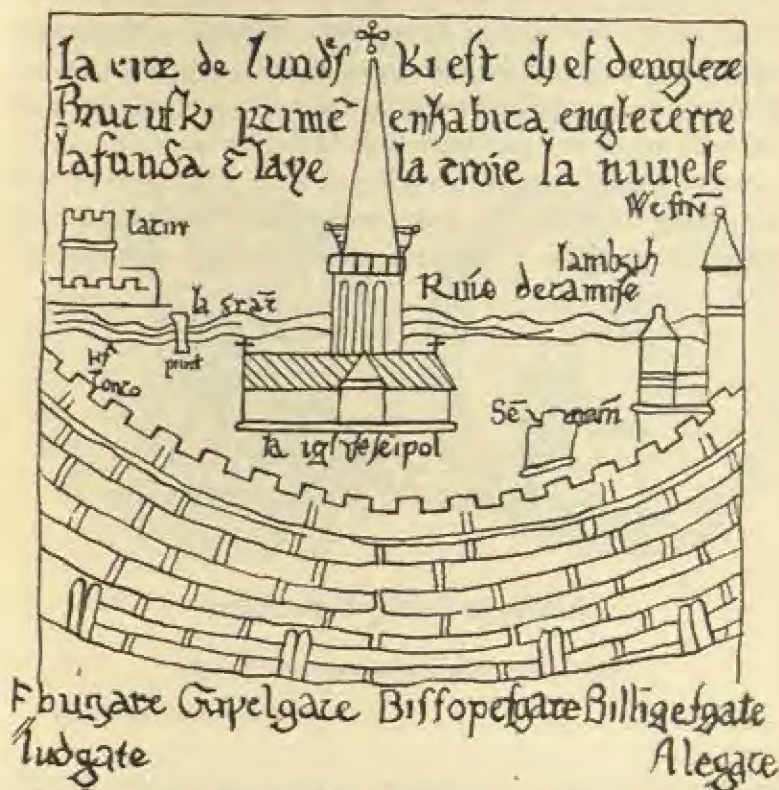 la cite de lundrs ki est chef denglete
Brutus ki prime enhabita engleterre
la funda e laye la troie la nuuele
Westm
la tur
lambeth
la grat
Riuie de tamise
punt
la iglyse seipol
Gripelgate Bissopesgate Billigesgate
ludgate Alegate